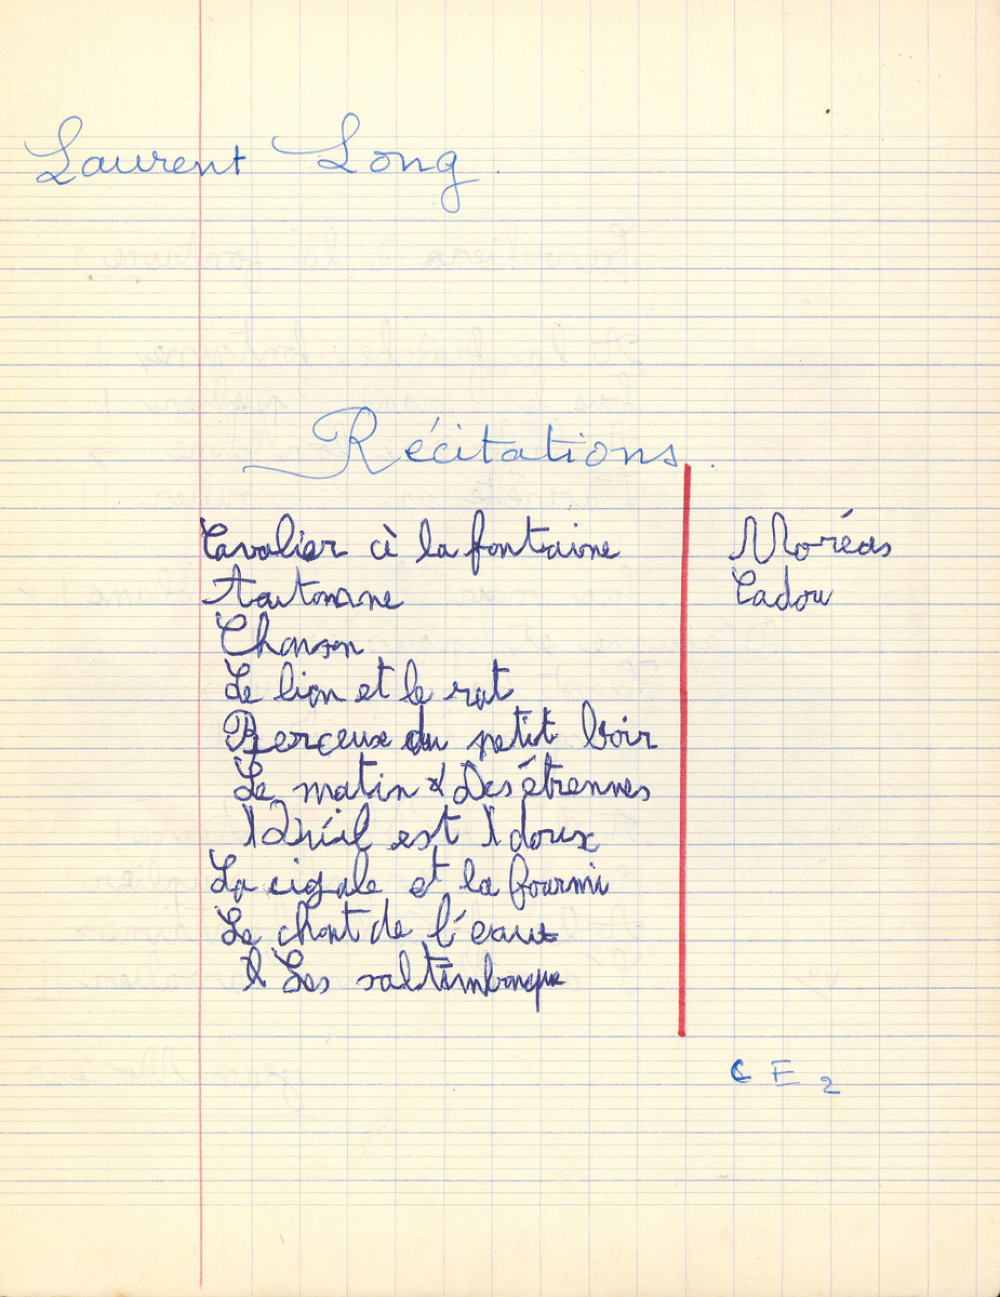 Laurent Long
Récitations
Cavalier à la fontaine Moréas
Automne Cadou
Chanson
Le lion et le rat
Berceuse du petit Loir
Le matin Des étrennes
est doux
La cigale et la fourmi
Le chant de l'eau
Les saltimbanque
CE2